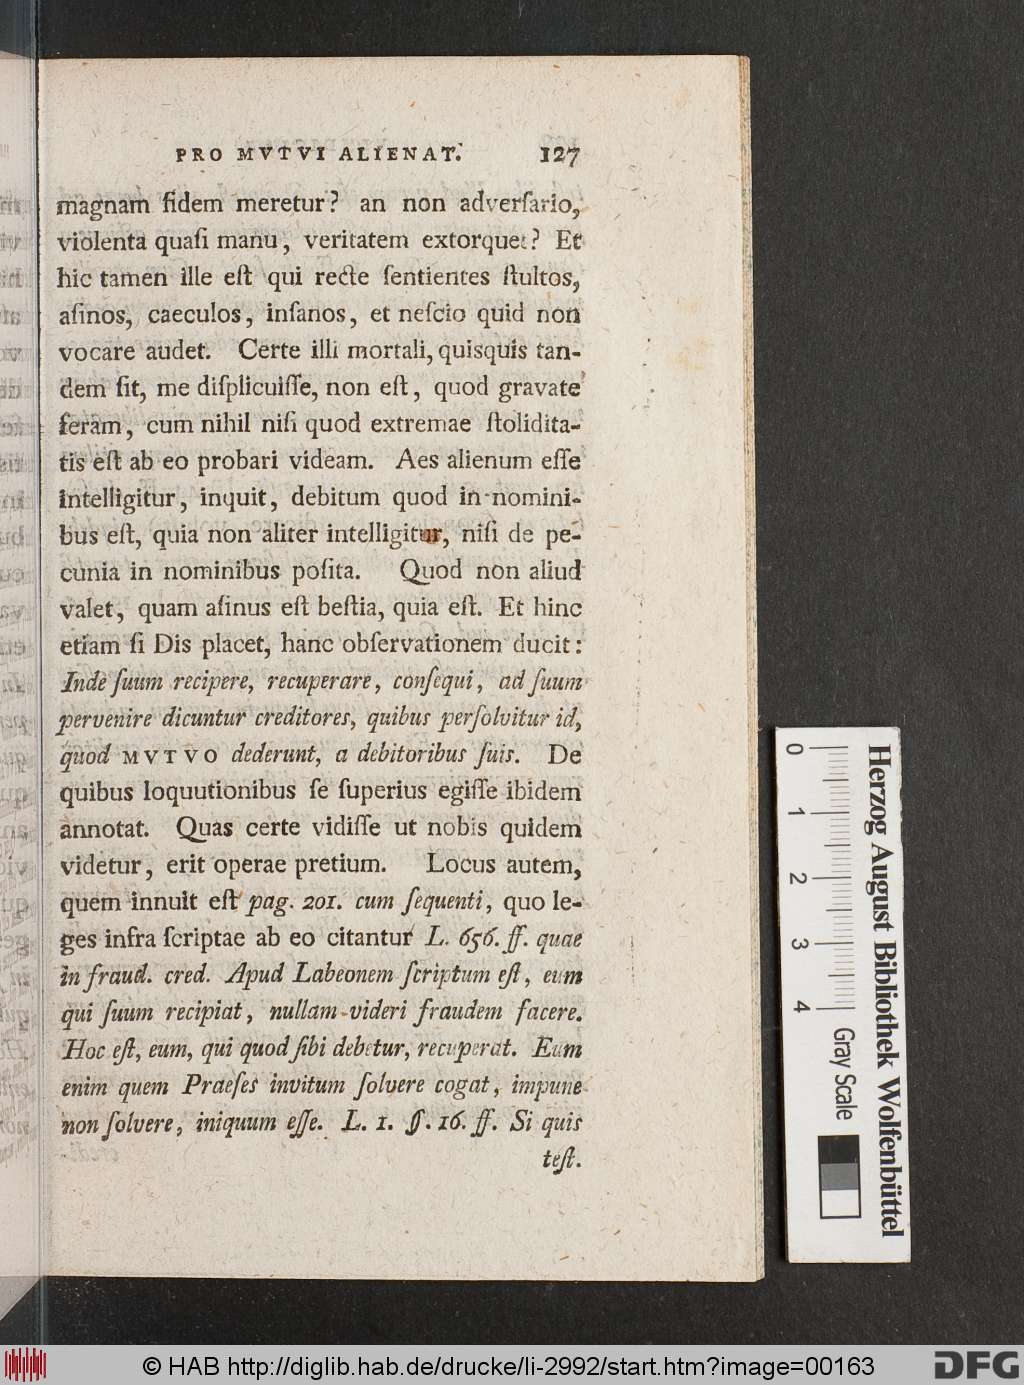 PRO MVTVI ALIENAT. 127
magnam fidem meretur? an non adverſario,
violenta quaſi manu, veritatem extorquet? Et
hic tamen ille eſt qui recte ſentientes ſtultos,
aſinos, caeculos, inſanos, et neſcio quid non
vocare audet. Certe illi mortali, quisquis tan-
dem ſit, me diſplicuiſſe, non eſt, quod gravate
feram, cum nihil niſi quod extremae ſtolidita-
tis eſt ab eo probari videam. Aes alienum eſſe
intelligitur, inquit, debitum quod in nomini-
bus eſt, quia non aliter intelligitur, niſi de pe-
cunia in nominibus poſita. Quod non aliud
valet, quam aſinus eſt beſtia, quia eſt. Et hinc
etiam ſi Dis placet, hanc obſervationem ducit:
Inde ſuum recipere, recuperare, conſequi, ad ſuum
pervenire dicuntur creditores, quibus perſolvitur id,
quod MVTVO dederunt, a debitoribus ſuis. De
quibus loquutionibus ſe ſuperius egiſſe ibidem
annotat. Quas certe vidiſſe ut nobis quidem
videtur, erit operae pretium. Locus autem,
quem innuit eſt pag. 201. cum ſequenti, quo le-
ges infra ſcriptae ab eo citantur L. 656. ff. quae
in fraud. cred. Apud Labeonem ſcriptum eſt, eum
qui ſuum recipiat, nullam videri fraudem facere.
Hoc eſt, eum, qui quod ſibi debetur, recuperat. Eum
enim quem Praeſes invitum ſolvere cogat, impune
non ſolvere, iniquum eſſe. L. 1. §. 16. ff. Si quis
teſt.
0 1 2 3 4
Herzog August Bibliothek Wolfenbüttel
Gray Scale
© HAB http://diglib.hab.de/drucke/li-2992/start.htm?image=00163
DFG